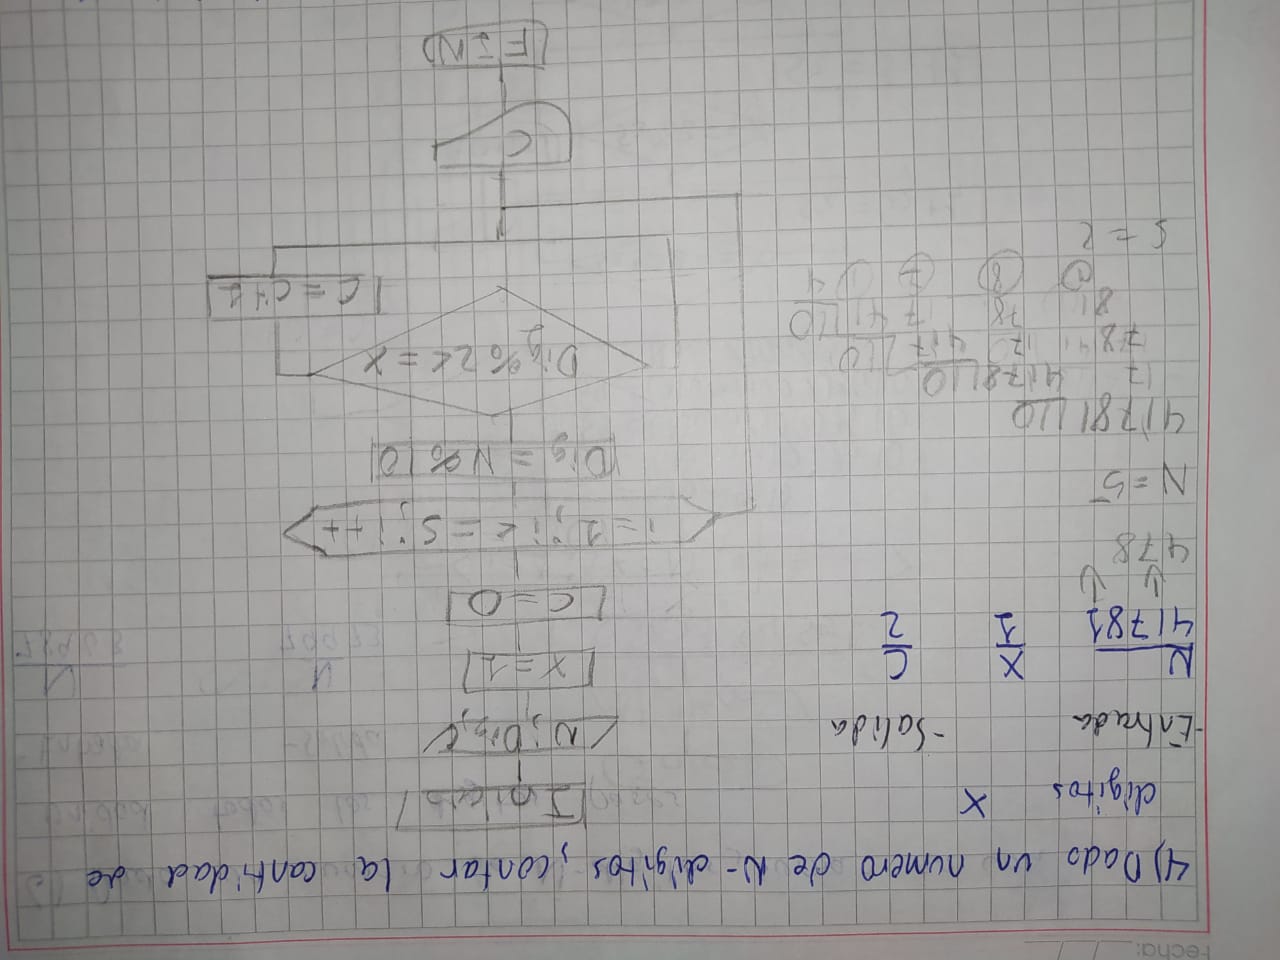 Fecha:
4) Dado un numero de N-digitos, contar la cantidad de
digitos X
-Entrada -Salida
N X C
41781 1 2
478
N=5
41781 10
17 4178 10
78 17 417 10
81 78 7 41 10
1 8 7 1 4
5 = 2
Inicio
N, Dig, C
X = 1
C = 0
i = 1; i <= 5; i++
Dig = N % 10
Dig % 2 <= X
C = C+1
C
FIN